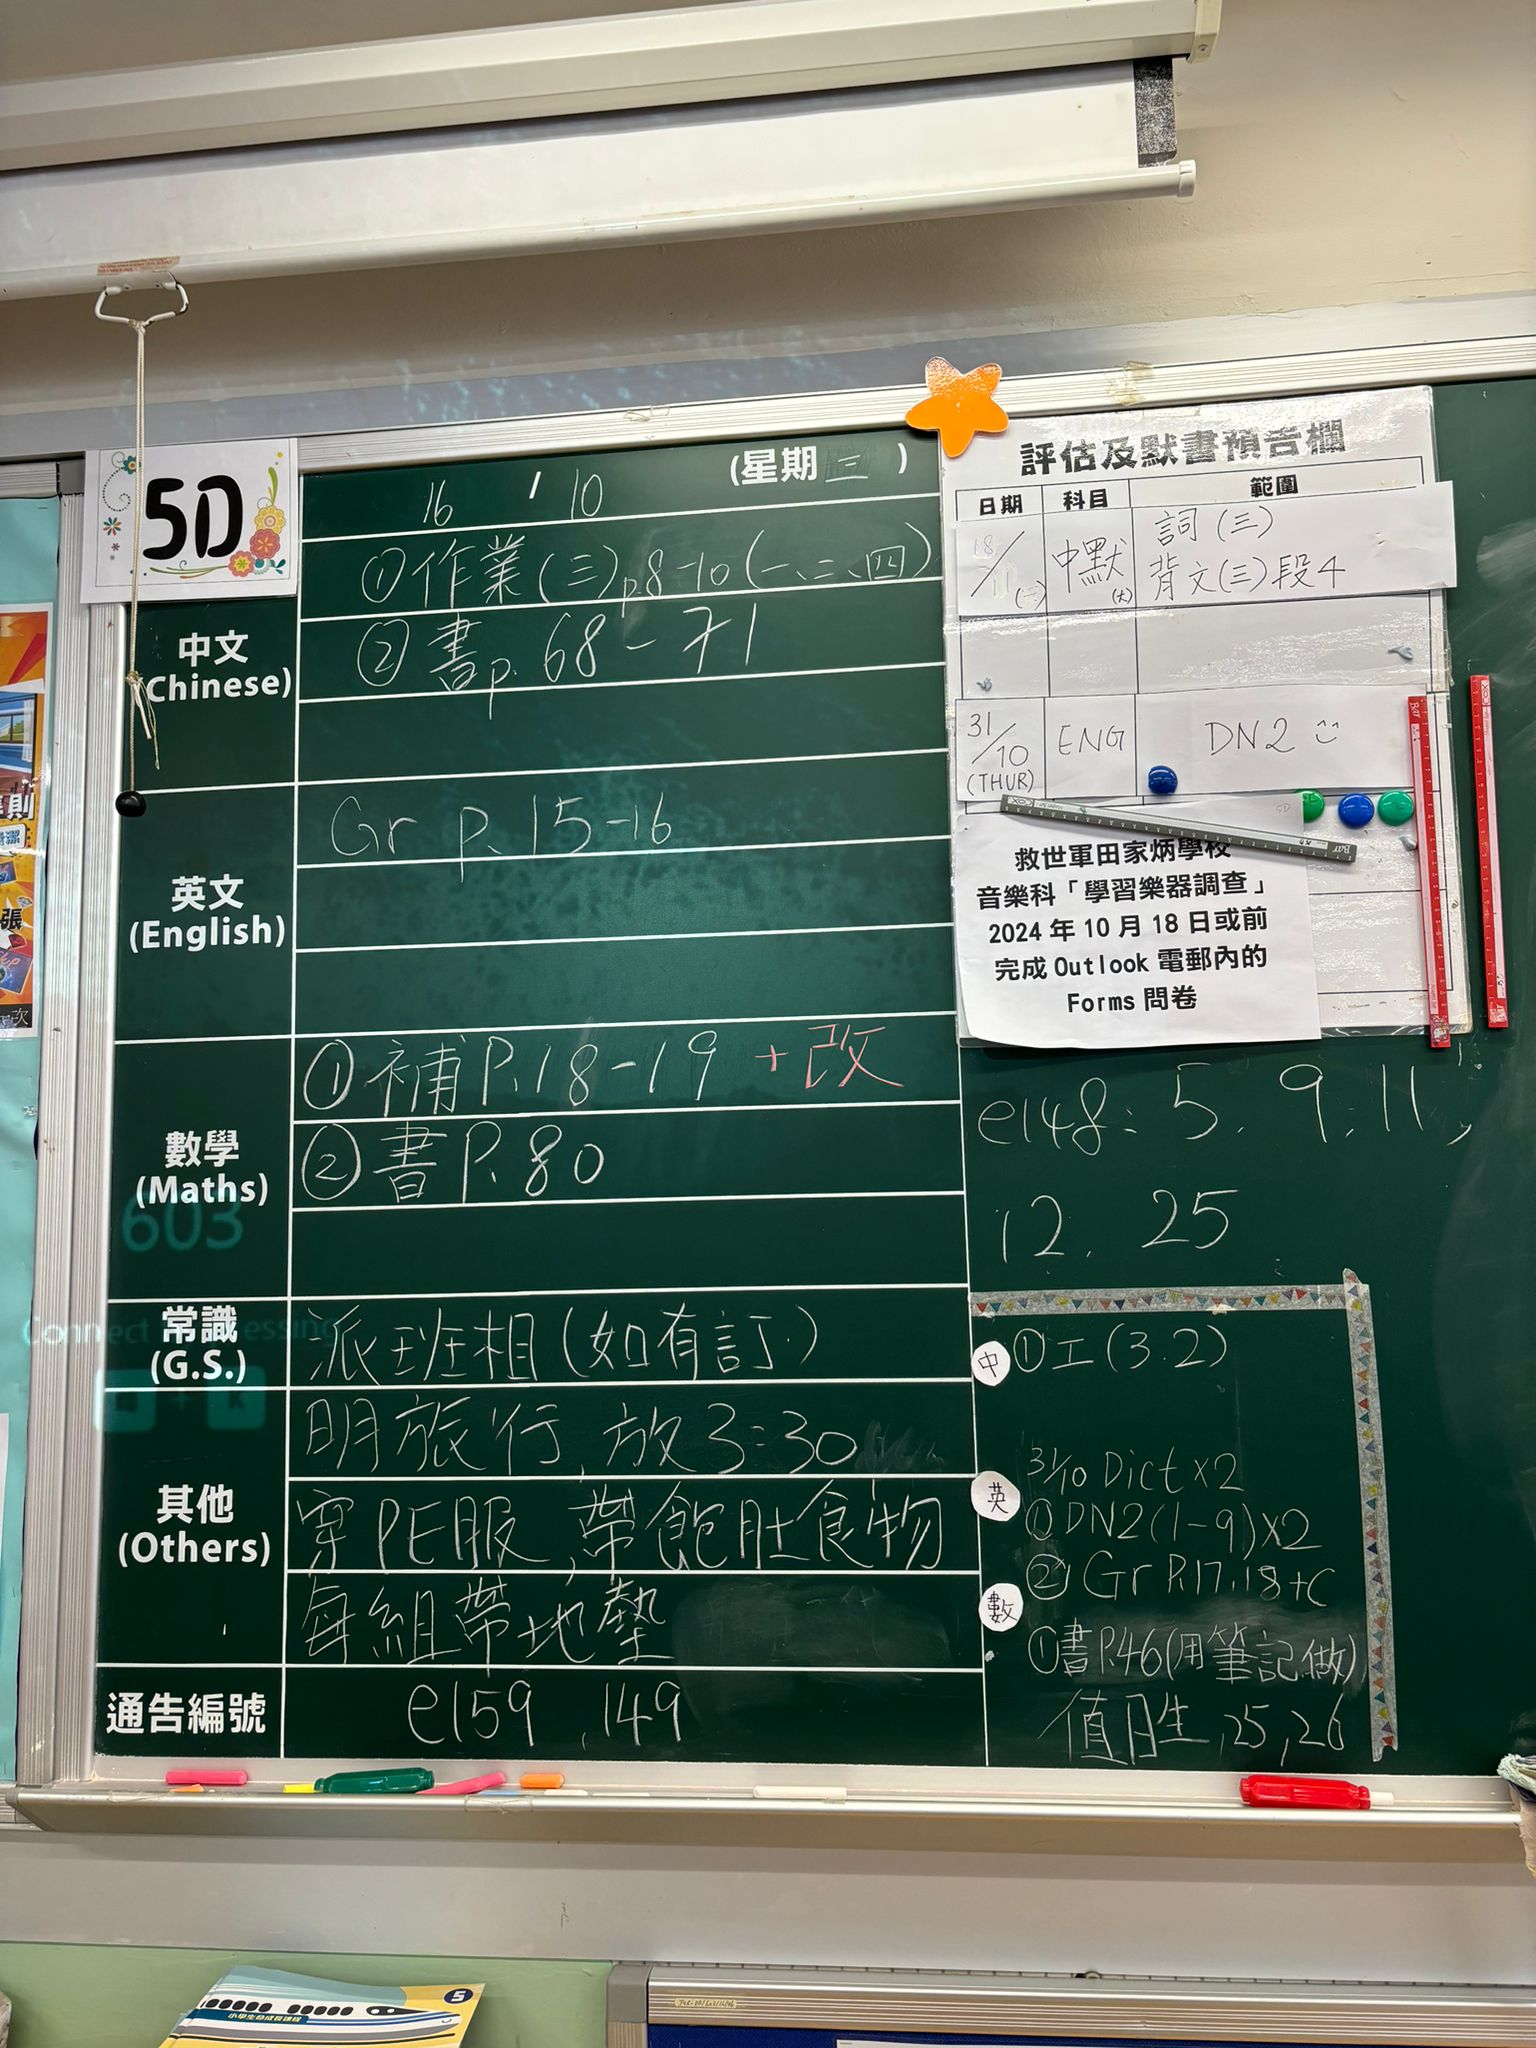 5D
16 / 10 (星期三)
中文
(Chinese)
①作業(三)p.8-10(一、二、四)
②書p.68-71
英文
(English)
Gr P.15-16
數學
(Maths)
①補P.18-19 +改
②書P.80
603
常識
(G.S.)
派班相(如有訂)
其他
(Others)
明旅行,放3:30
穿PE服,帶飽肚食物
每組帶地墊
通告編號
e159,149
評估及默書預告欄
日期 科目 範圍
中默(大) 詞(三)
背文(三)段4
31/10 (THUR) ENG DN2
救世軍田家炳學校
音樂科「學習樂器調查」
2024年10月18日或前
完成Outlook電郵內的
Forms問卷
e148: 5, 9, 11,
12, 25
中 ①工(3.2)
英 31/10 Dict x2
①DN2(1-9)x2
②Gr P.17,18+C
數 ①書P.46(用筆記做)
值日生,25,26
小學生命成長課程
5